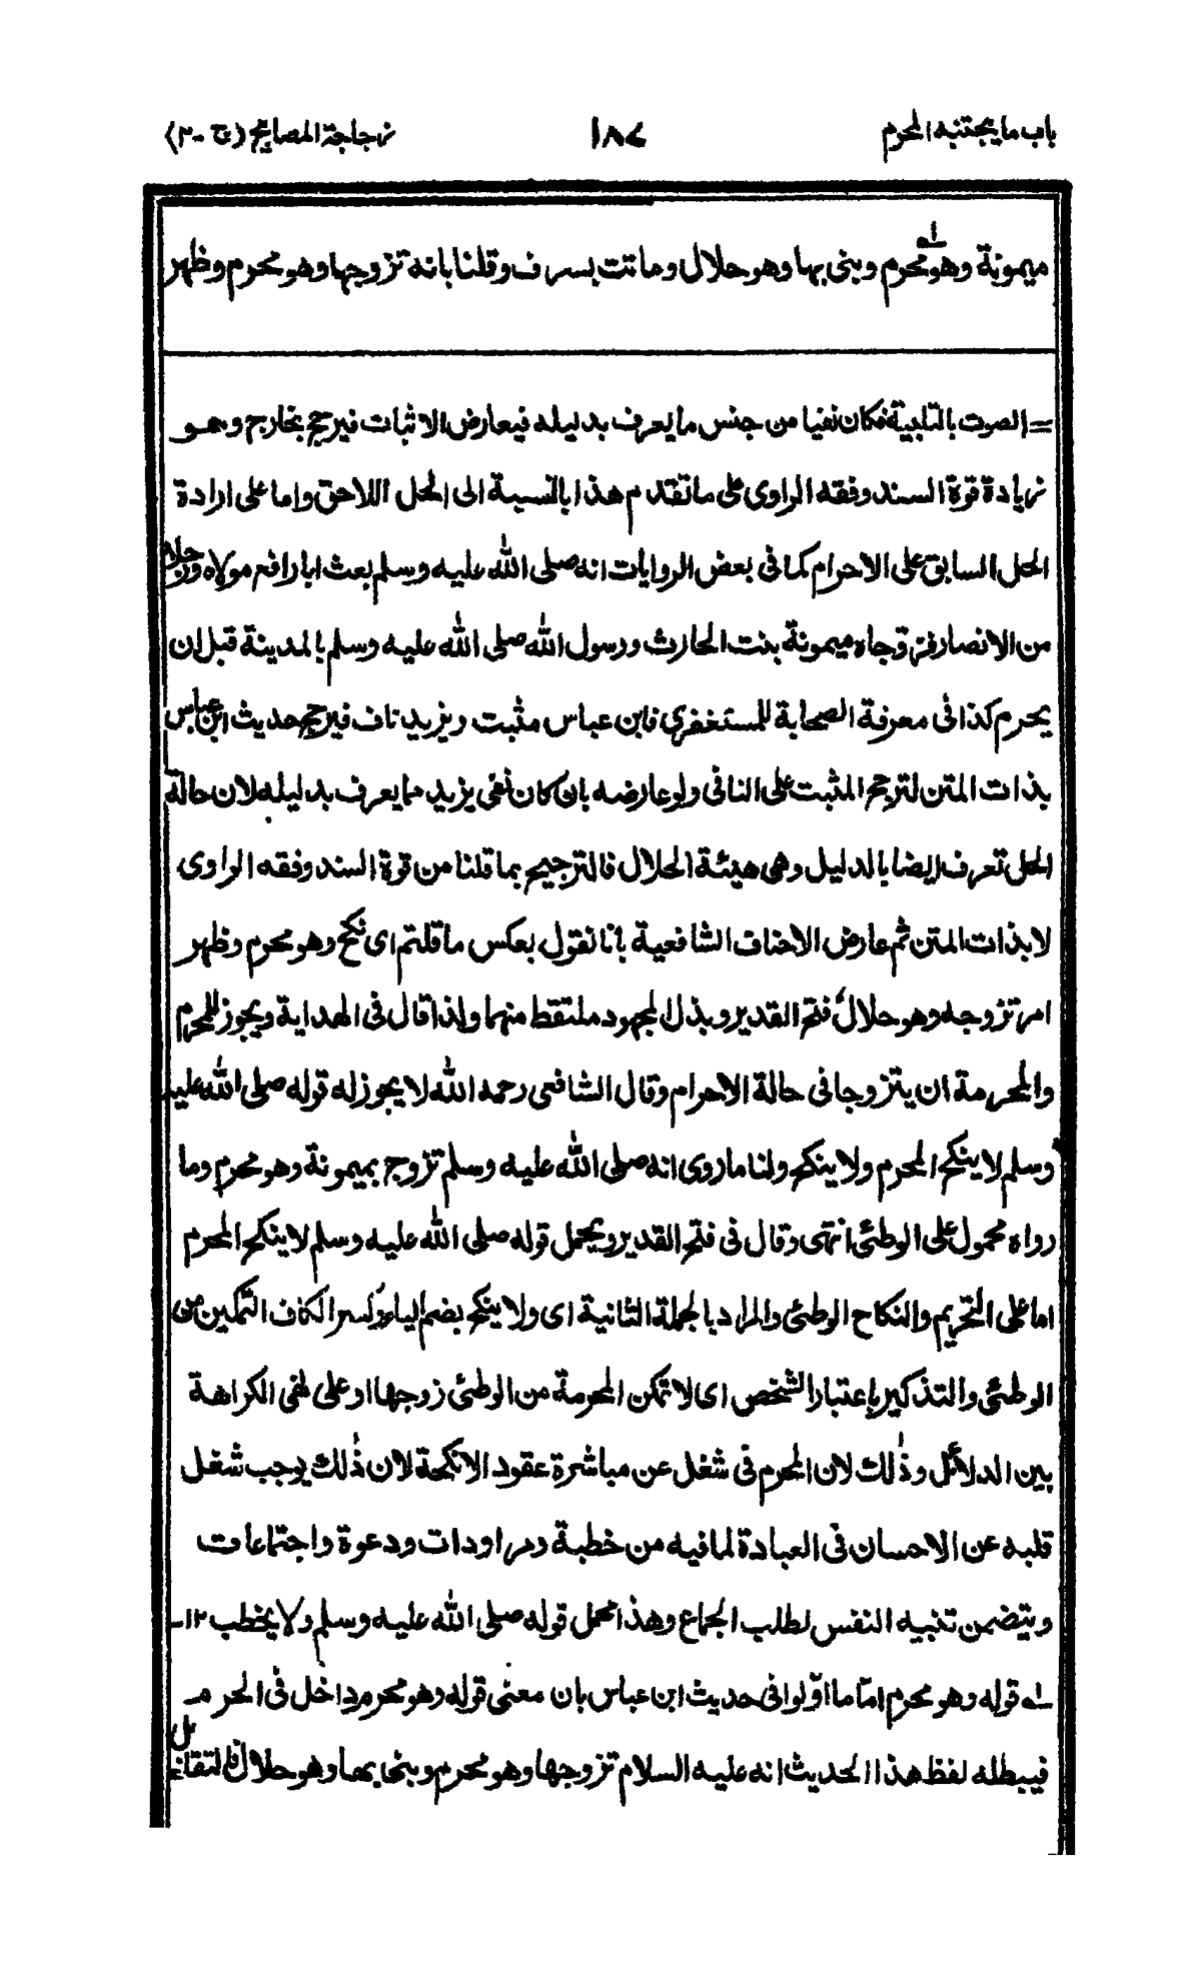 باب ما يجتنبه المحرم ١٨٧ زجاجة المصابيح (ج-٢)
ميمونة وهو محرم وبنى بها وهو حلال وماتت بسرف وقلنا بانه تزوجها وهو محرم وظهر
= الصوت بالتلبية فكان نفيا من جنس ما يعرف بدليله فيعارض الاثبات فيرجح بخارج وهو
زيادة قوة السند وفقه الراوى على ما تقدم هذا بالنسبة الى الحل اللاحق واما على ارادة
الحل السابق على الاحرام كما فى بعض الروايات انه صلى الله عليه وسلم بعث ابا رافع مولاه ورجلا
من الانصار فزوّجاه ميمونة بنت الحارث ورسول الله صلى الله عليه وسلم بالمدينة قبل ان
يحرم كذا فى معرفة الصحابة للمستغفرى فابن عباس مثبت ويزيد ناف فيرجح حديث ابن عباس
بذات المتن لترجح المثبت على النافى ولو عارضه بان كان نفى يزيد مما يعرف بدليله لان حالة
الحل تعرف ايضا بالدليل وهى هيئة الحلال فالترجيح بما قلنا من قوة السند وفقه الراوى
لا بذات المتن ثم عارض الاحناف الشافعية بانا نقول بعكس ما قلتم اى نكح وهو محرم وظهر
امر تزوجه وهو حلال فتح القدير وبذل المجهود ملتقط منهما ولذا قال فى الهداية ويجوز للمحرم
والمحرمة ان يتزوجا فى حالة الاحرام وقال الشافعى رحمه الله لا يجوز له قوله صلى الله عليه
وسلم لا ينكح المحرم ولا ينكح ولنا ما روى انه صلى الله عليه وسلم تزوج بميمونة وهو محرم وما
رواه محمول على الوطئ انتهى وقال فى فتح القدير ويحمل قوله صلى الله عليه وسلم لا ينكح المحرم
اما على التحريم والنكاح الوطئ والمراد بالجملة الثانية اى ولا ينكح بضم الياء وكسر الكاف التمكين من
الوطئ والتذكير باعتبار الشخص اى لا تمكن المحرمة من الوطئ زوجها او على نفى الكراهة
بين الدلائل وذٰلك لان المحرم فى شغل عن مباشرة عقود الانكحة لان ذٰلك يوجب شغل
قلبه عن الاحسان فى العبادة لما فيه من خطبة ومراودات ودعوة واجتماعات
ويتضمن تنبيه النفس لطلب الجماع وهذا محمل قوله صلى الله عليه وسلم ولا يخطب ١٢
له قوله وهو محرم امّا ما اوّلوا فى حديث ابن عباس بان معنى قوله وهو محرم داخل فى الحرم
فيبطله لفظ هذا الحديث انه عليه السلام تزوجها وهو محرم وبنى بها وهو حلال